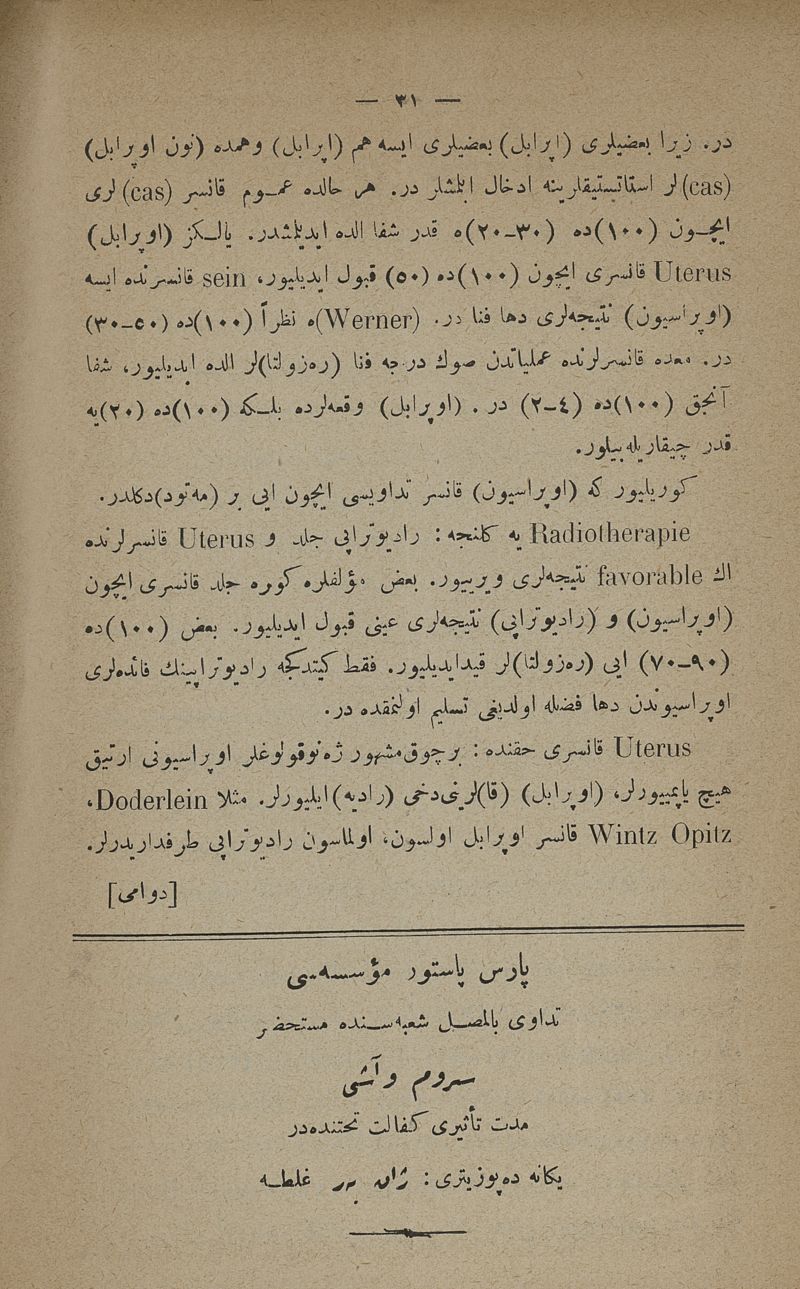 — ٣١ —
در. زیرا بعضیلری (اپرابل) بعضیلری ایسه هم (اپرابل) وهمده (نون اوپرابل)
(cas)لر استاتستیقلرینه ادخال ایتمشلر در. هر حالده عموم قانسر (cas)لری
ایچون (١٠٠)ده (٣٠-٢٠)ه قدر شفا الده ایدیلمشدر. یالکز (اوپرابل)
Uterus قانسری ایچون (١٠٠)ده (٥٠) قبول ایدیلیور، sein قانسرنده ایسه
(اوپراسیون) نتیجه‌لری دها فنا در. (Werner)ه نظراً (١٠٠)ده (٥٠-٣٠)
در. معده قانسرلرنده عملیاتدن صوك درجه فنا (ره‌زولتا)لر الده ایدیلیور، شفا
آنجق (١٠٠)ده (٤-٢) در. (اوپرابل) وقعه‌لرده بلکه (١٠٠)ده (٢٠)یه
قدر چیقاریله بیلور.
کوریلیور که (اوپراسیون) قانسر تداویسی ایچون ایی بر (مه‌تود)دکلدر.
Radiotherapie یه کلنجه: رادیوتراپی جلد و Uterus قانسرلرنده
اك favorable نتیجه‌لری ویرییور. بعض مؤلفلره کوره جلد قانسری ایچون
(اوپراسیون) و (رادیوتراپی) نتیجه‌لری عینی قبول ایدیلیور. بعض (١٠٠)ده
(٩٠-٧٠) ایی (ره‌زولتا)لر قیدایدیلیور. فقط کیتدکجه رادیوتراپینك فائده‌لری
اوپراسیوندن دها فضله اولدیغی تسلیم اولنمقده در.
Uterus قانسری حقنده: برچوق مشهور ژه‌نوقولوغلر اوپراسیونی ارتیق
هیچ یاپمییورلر، (اوپرابل) (قا)لرنی‌دخی (رادیه)ایلیورلر. مثلا Doderlein،
Wintz Opitz قانسر اوپرابل اولسون، اولماسون رادیوتراپی طرفداریدرلر.
[دوامی]
پارس پاستور مؤسسه‌سی
تداوی بالمصل شعبه‌سنده مستحضر
سروم وآشی
مدت تأثیری کفالت تحتنده‌در
یکانه ده‌پوزیتری: ژان غلطه